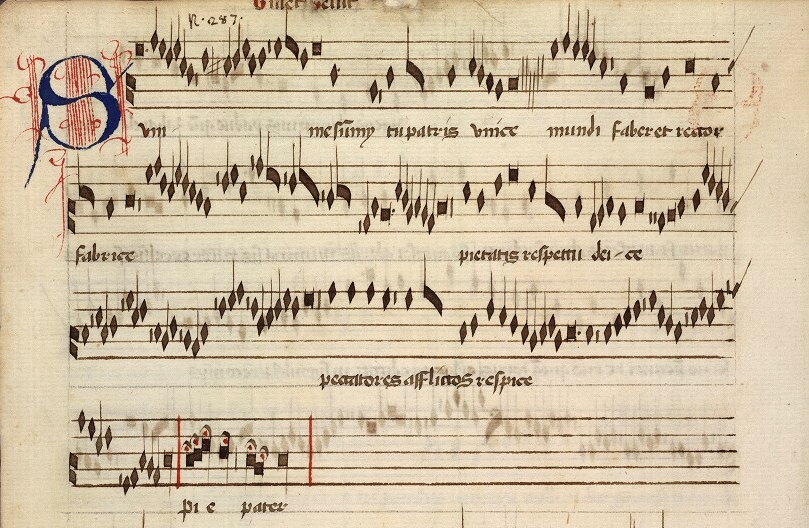 R. 287.
S vm mesumy tu patris vnice mundi faber et rector
fabrice pietatis respectu dei-ce
peccatores afflictos respice
pi e pater